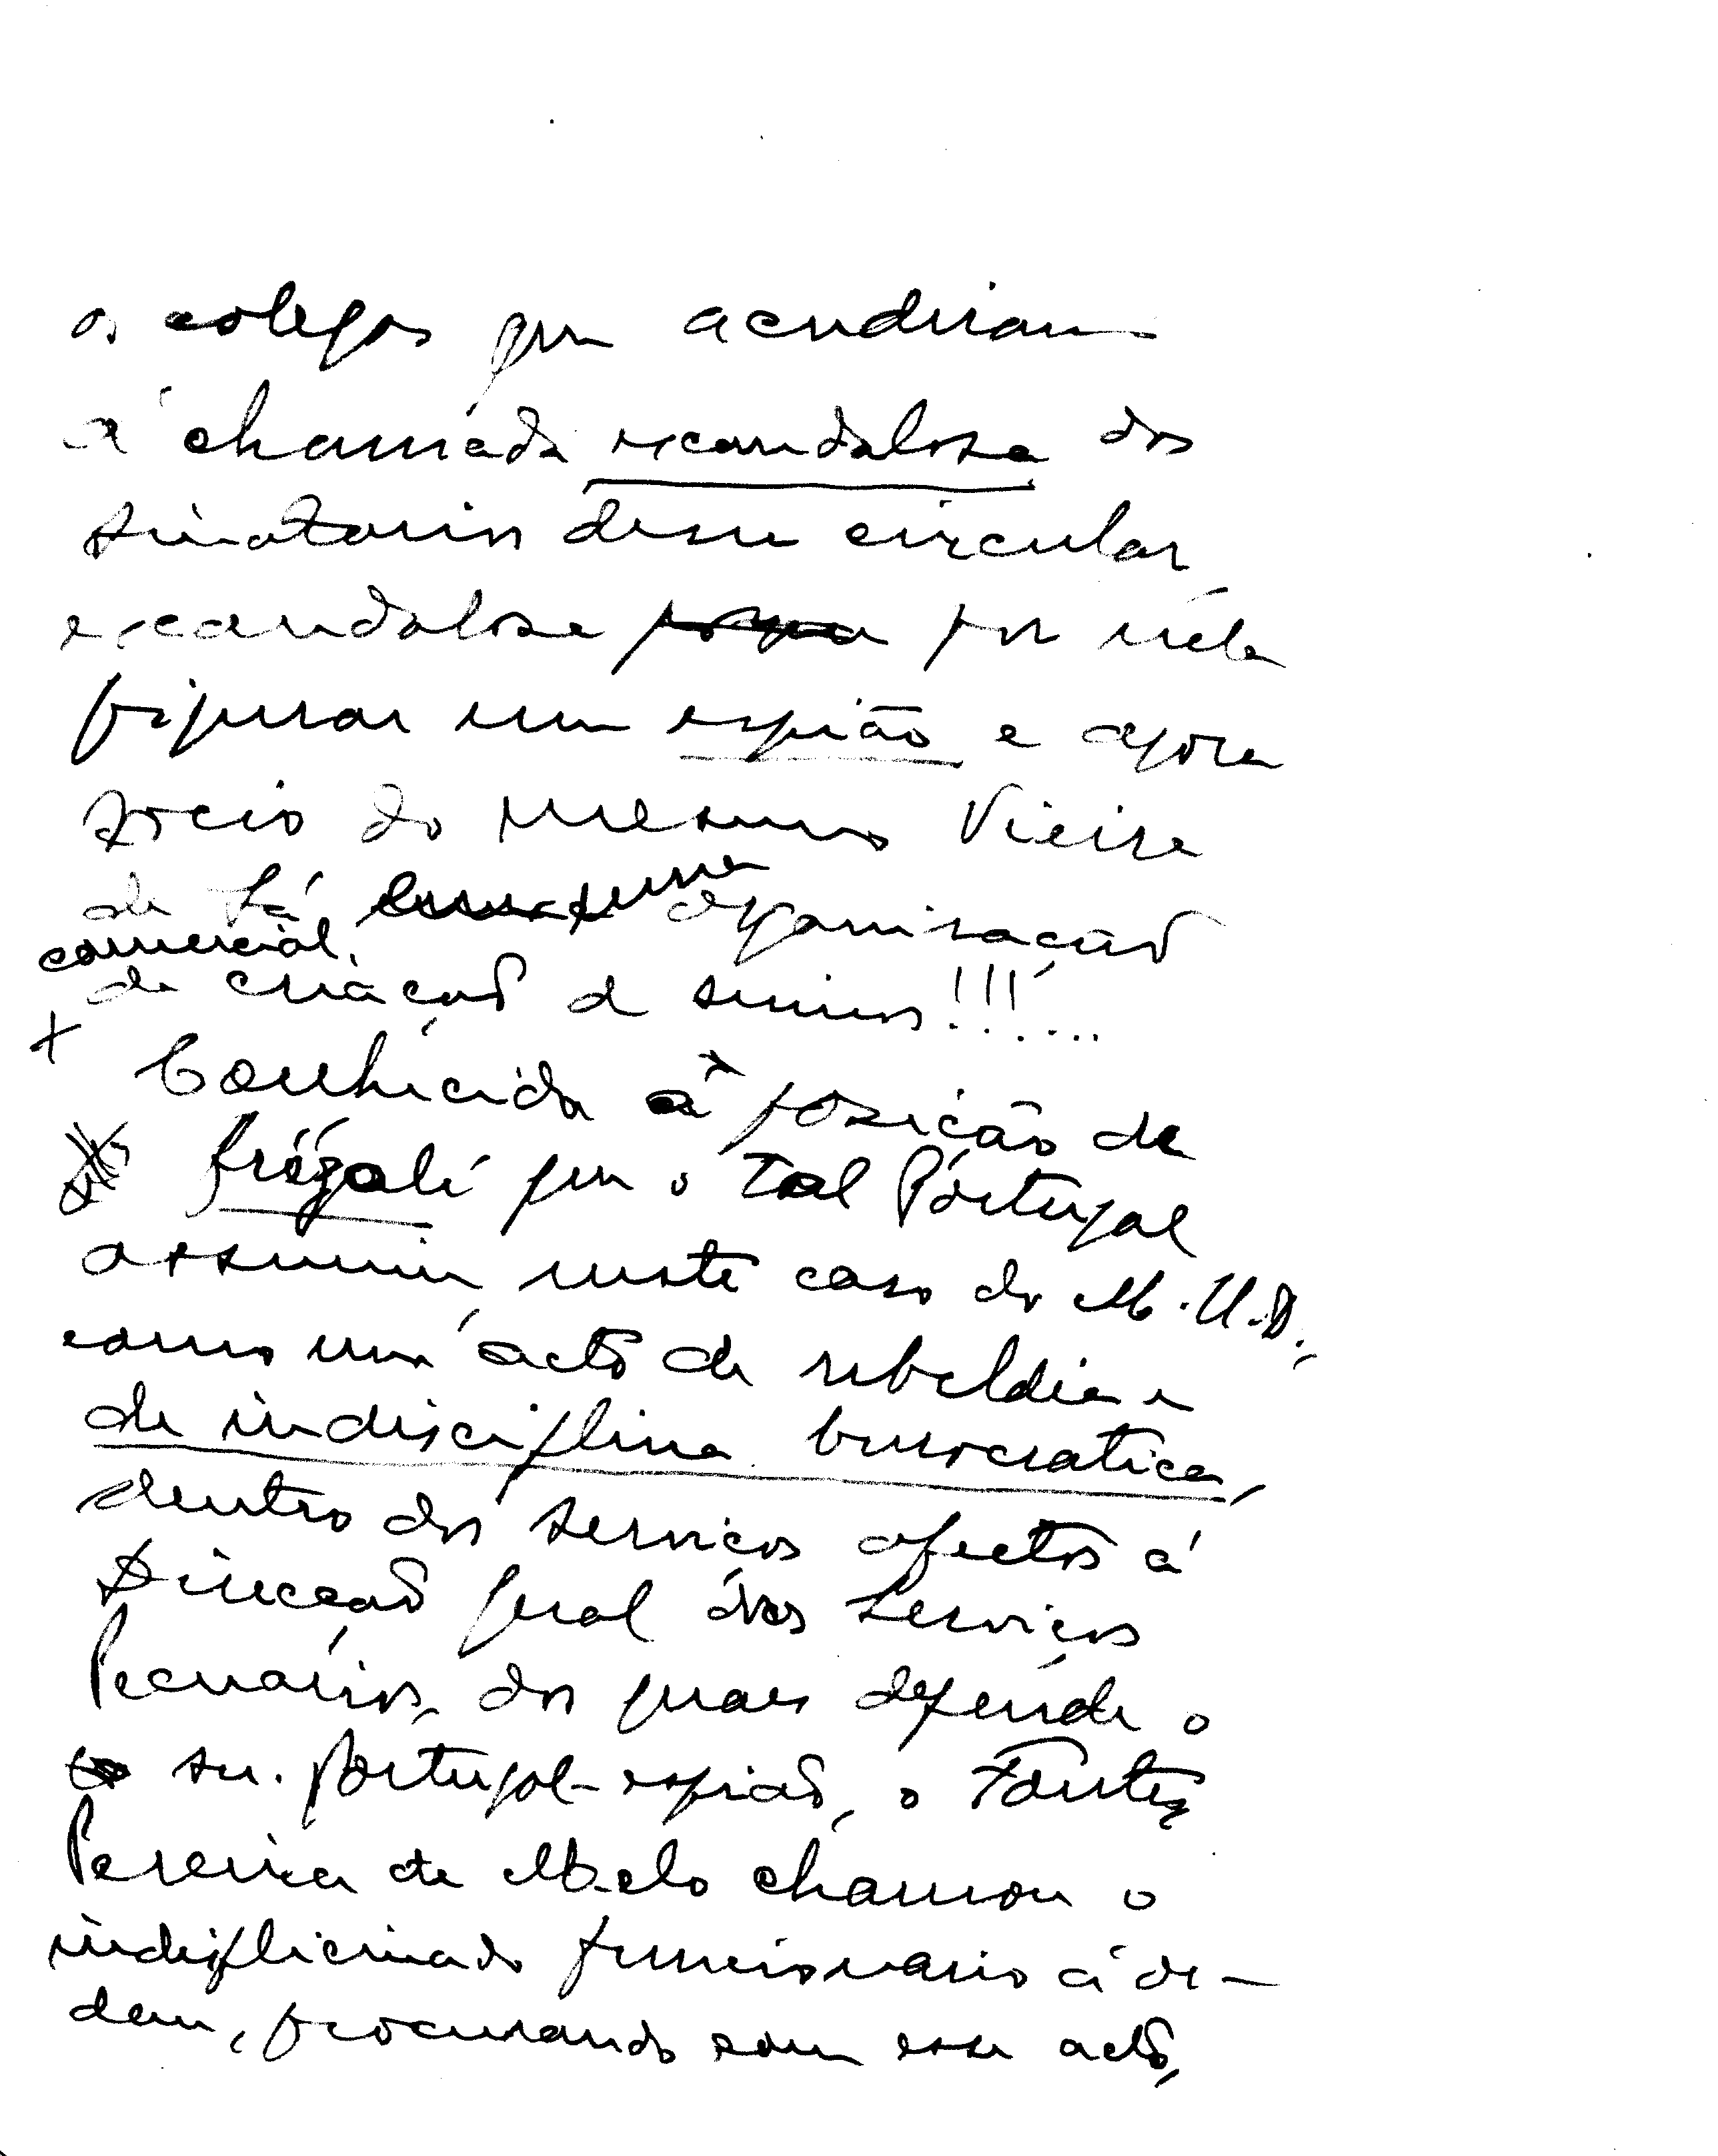 os colegas que acudiram
á chamada escandalosa dos
sinatarios desse circular,
escandalosa porque por nela
figurar um espião e agora
socio do mesmo Vieira
de Sá, numa organisação
comercial
de criação de suinos!!!...
Conhecida a posição de
que o tal Portugal
assumiu, neste caso do M.U.D.,
como um acto de rebeldia e
de indisciplina burocratica,
dentro dos serviços afectos á
Direcção geral dos Serviços
Pecuários, dos quaes depende o
sr. Portugal-espião, o Fontes
Pereira de Melo chamou o
indisplicinado funcionario á or-
dem, procurando com esse acto,